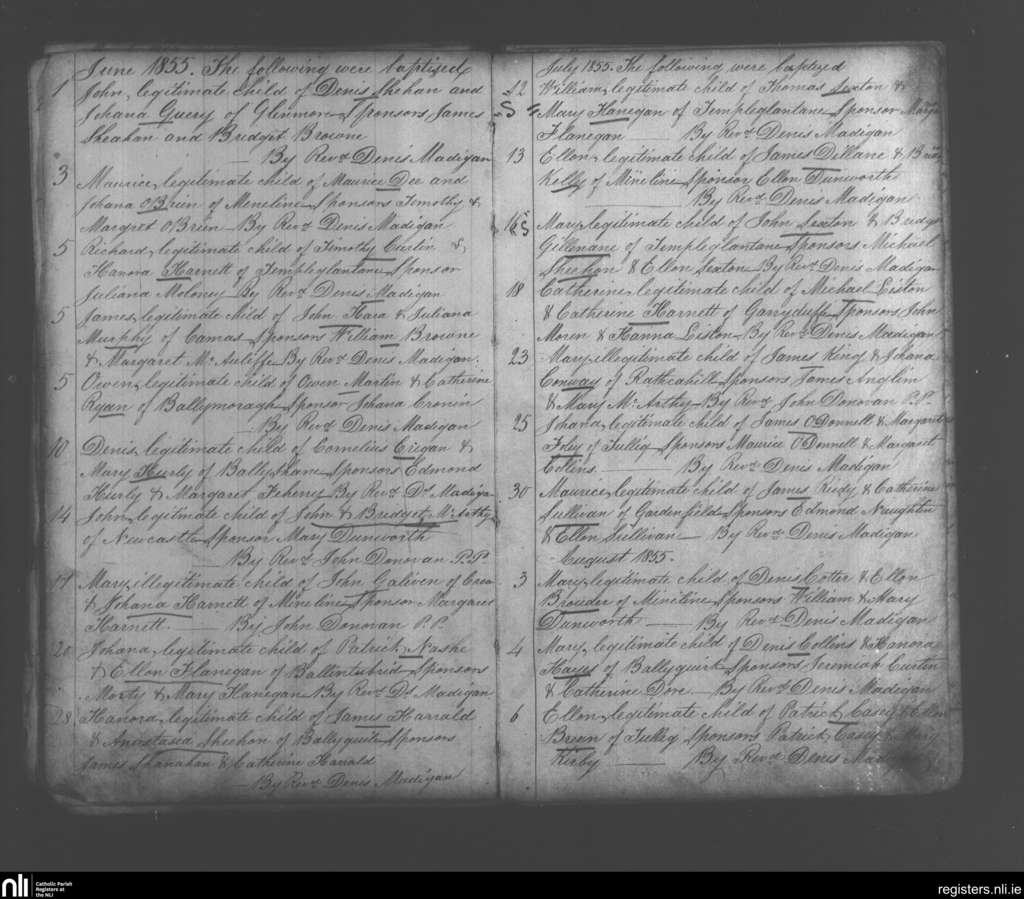 June 1855. The following were baptized
1 John, legitimate child of Denis Shehan and
Johana Guery of Glenmore Sponsors James
Sheahan and Bridget Browne
By Revd. Denis Madigan
3 Maurice, legitimate child of Maurice Dee and
Johana O'Brien of Meneline Sponsors Timothy &
Margret O'Brien By Revd. Denis Madigan
5 Richard, legitimate child of Timothy Curtin &
Hanora Harnett of Templeglantane Sponsor
Juliana Moloney By Revd. Denis Madigan
5 James, legitimate child of John Hara & Juliana
Murphy of Camas Sponsors William Browne
& Margaret McAuliffe By Revd. Denis Madigan.
5 Owen, legitimate child of Owen Martin & Catherine
Ryan of Ballymoragh Sponsor Johana Cronin
By Revd. Denis Madigan
10 Denis, legitimate child of Cornelius Criegan &
Mary Hurly of Ballyshane Sponsors Edmond
Hurly & Margaret Feheney By Revd. Ds. Madigan
14 John, legitimate child of John & Bridget McArthy
of Newcastle Sponsor Mary Dunworth
By Revd. John Donovan P.P.
17 Mary, illegitimate child of John Galiven of
& Johana Harnett of Mineline Sponsor Margaret
Harnett. By John Donovan P.P.
20 Johana, legitimate child of Patrick Nashe
& Ellon Flanegan of Ballintubrid Sponsors
Morty & Mary Flanegan By Revd. Ds. Madigan
28 Hanora, legitimate child of James Harrald
& Anastasia Sheehon of Ballyquirk Sponsors
James Shanahan & Catherine Harrald
By Revd. Denis Madigan
July 1855. The following were baptized
12 William, legitimate child of Thomas Sexton &
Mary Flanegan of Templeglantane Sponsor Mary
Flanegan By Revd. Denis Madigan
13 Ellon, legitimate child of James Dillane &
Kelly of Mineline Sponsor Ellon Dunworth
By Revd. Denis Madigan
Mary, legitimate child of John Sexton & Bridget
Gillenane of Templeglantane Sponsors Michael
Sheehon & Ellon Sexton By Revd. Denis Madigan
18 Catherine, legitimate child of Michael Liston
& Catherine Harnett of Garryduff Sponsors John
Moren & Hanna Liston By Revd. Denis Madigan
23 Mary, illegitimate child of James King & Johana
Conway of Rathcahill Sponsors James Anglim
& Mary McArthy By Revd. John Donovan P.P.
25 Johana, legitimate child of James O'Donnell & Margaret
Foley of Tullig Sponsors Maurice O'Donnell & Margaret
Collins. By Revd. Denis Madigan
30 Maurice, legitimate child of James Riedy & Catherine
Sullivan of Gardenfield Sponsors Edmond Naughtin
& Ellon Sullivan By Revd. Denis Madigan
August 1855.
3 Mary, legitimate child of Denis Cotter & Ellon
Brouder of Mineline Sponsors William & Mary
Dunworth By Revd. Denis Madigan
4 Mary, legitimate child of Denis Collins & Hanora
Hayes of Ballyquirk Sponsors Jeremiah Curtin
& Catherine Dore. By Revd. Denis Madigan
6 Ellon, legitimate child of Patrick Casey & Ellon
Breen of Tullig Sponsors Patrick Casey & Mary
Kirby By Revd. Denis Madigan
nli Catholic Parish
Registers at
the NLI
registers.nli.ie